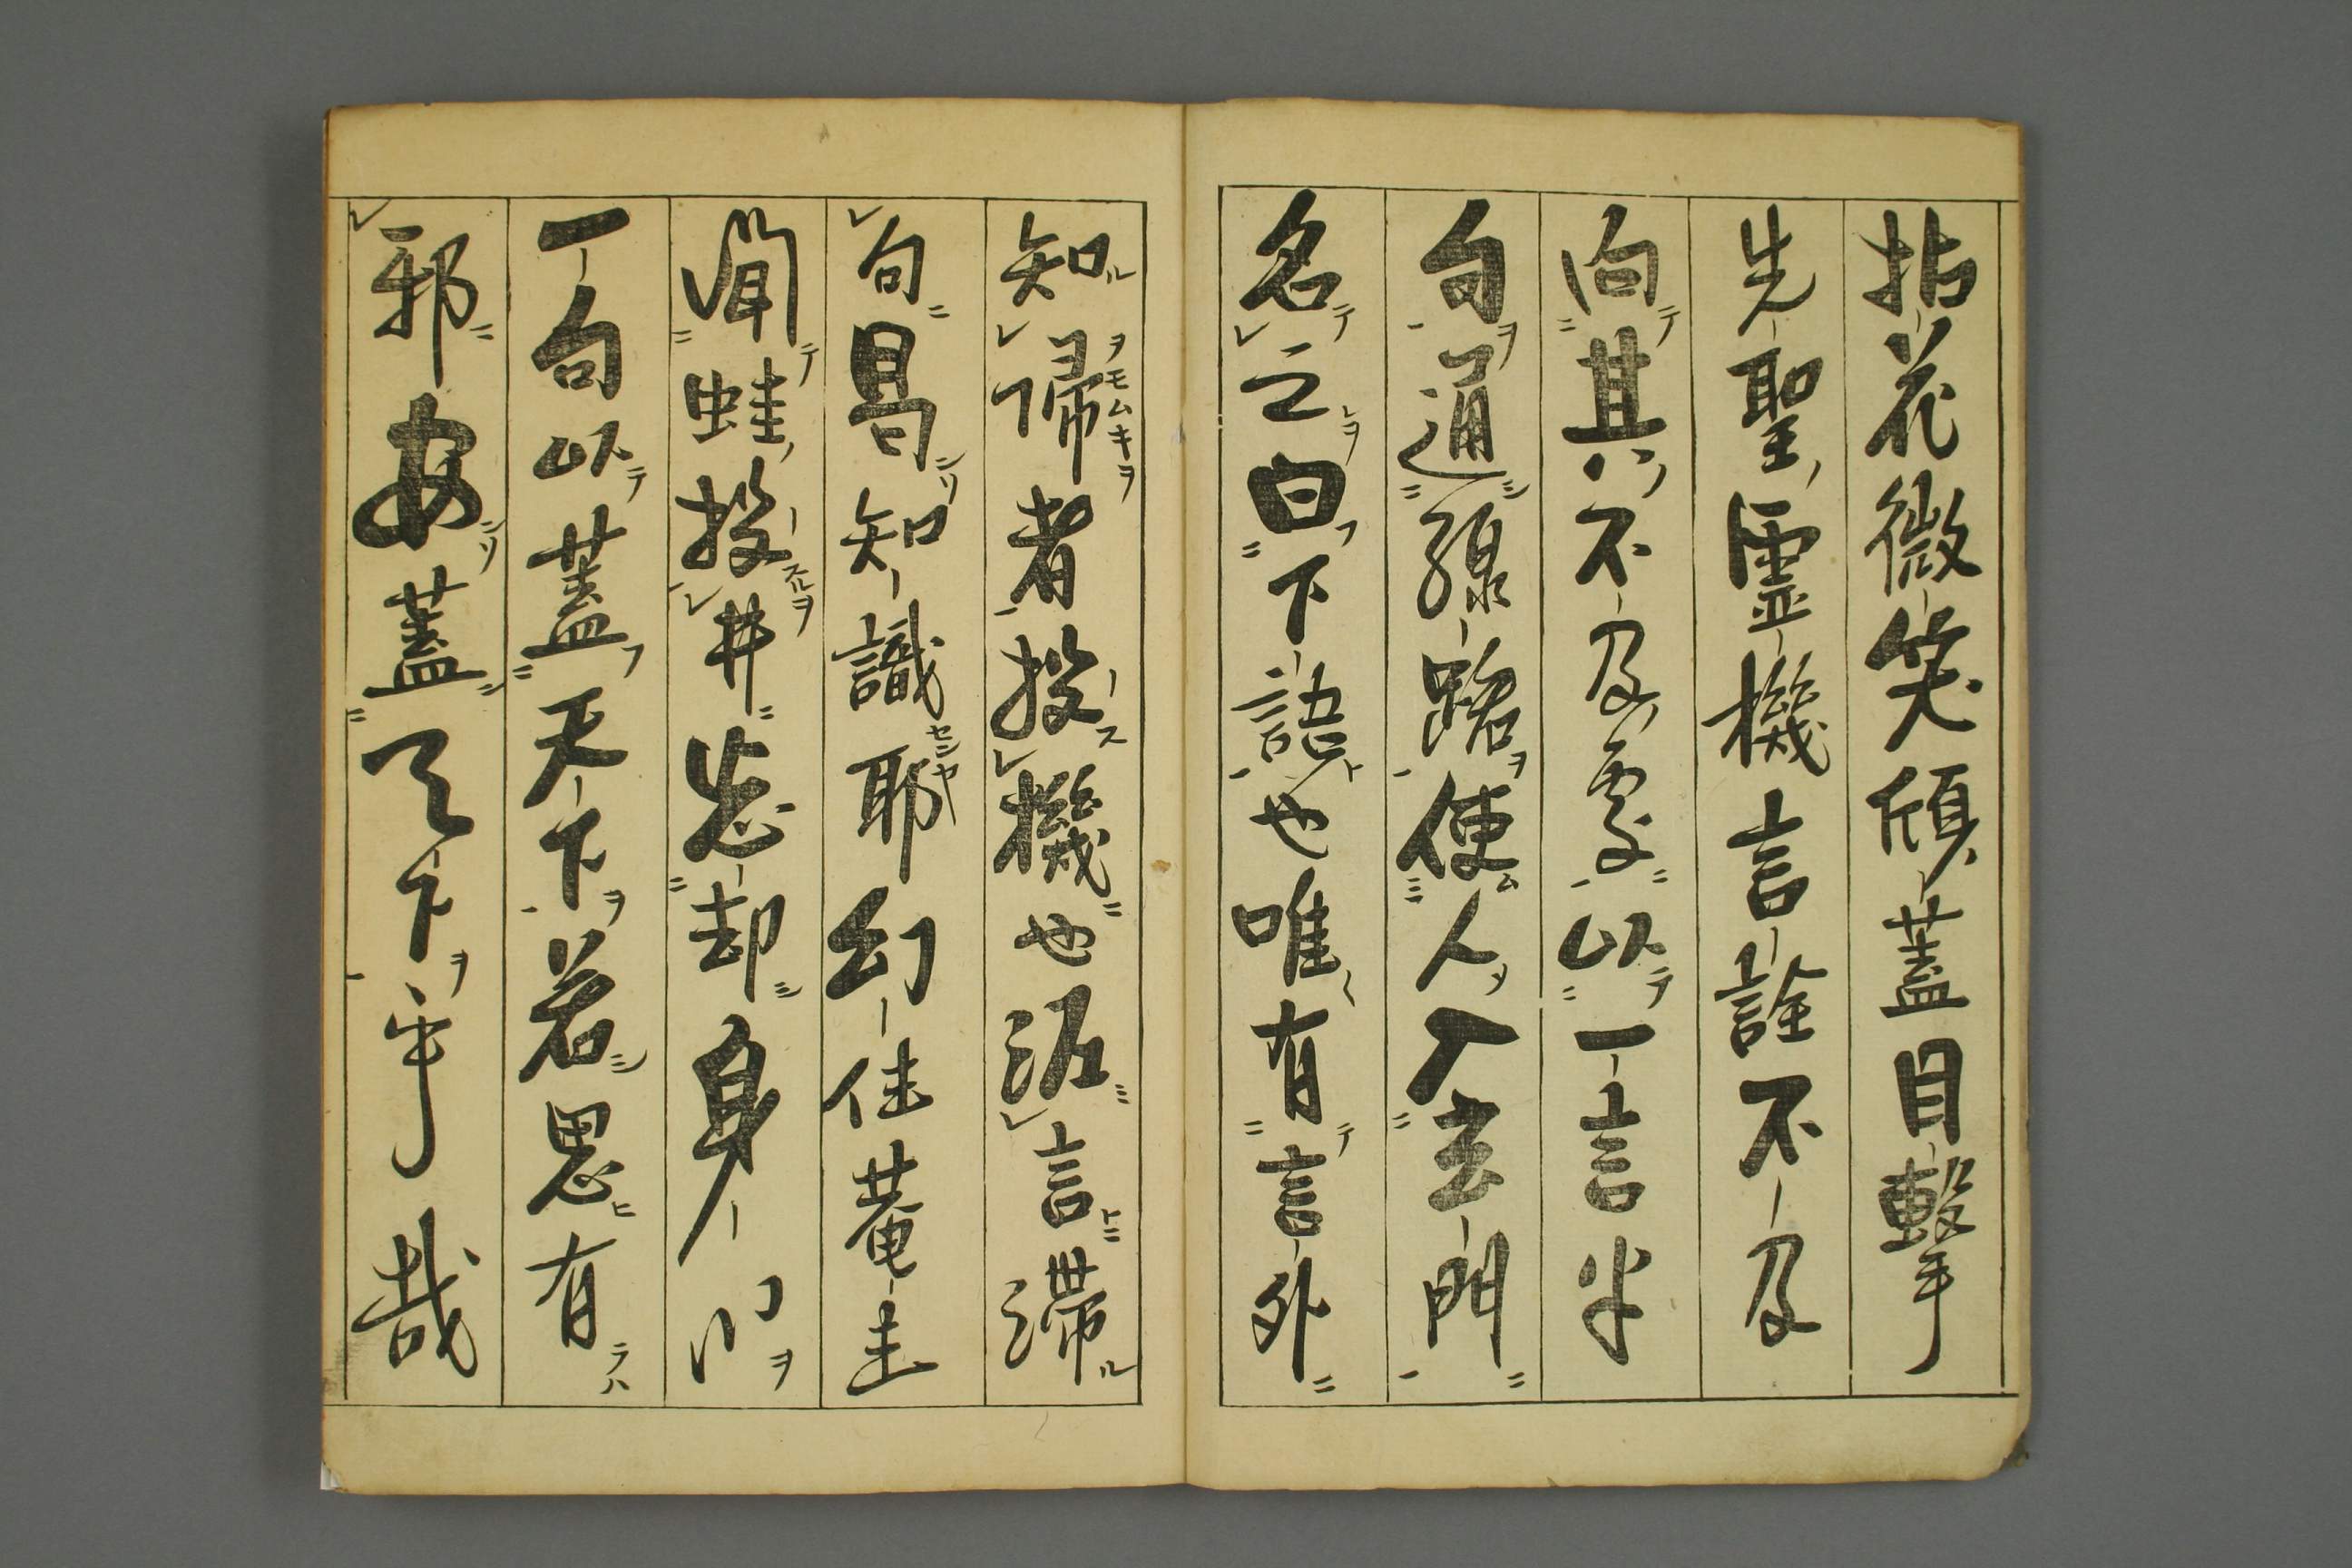 拈花微笑傾蓋目擊
先聖霊機言詮不及
向其不及處以一言半
句通線路使人入玄門
名之曰下語也唯有言外
知帰者投機也泥言滞
句曷知識耶幻住菴主
聞蛙投井忘却身心
一句以蓋天下若思有
邪安蓋天下乎哉